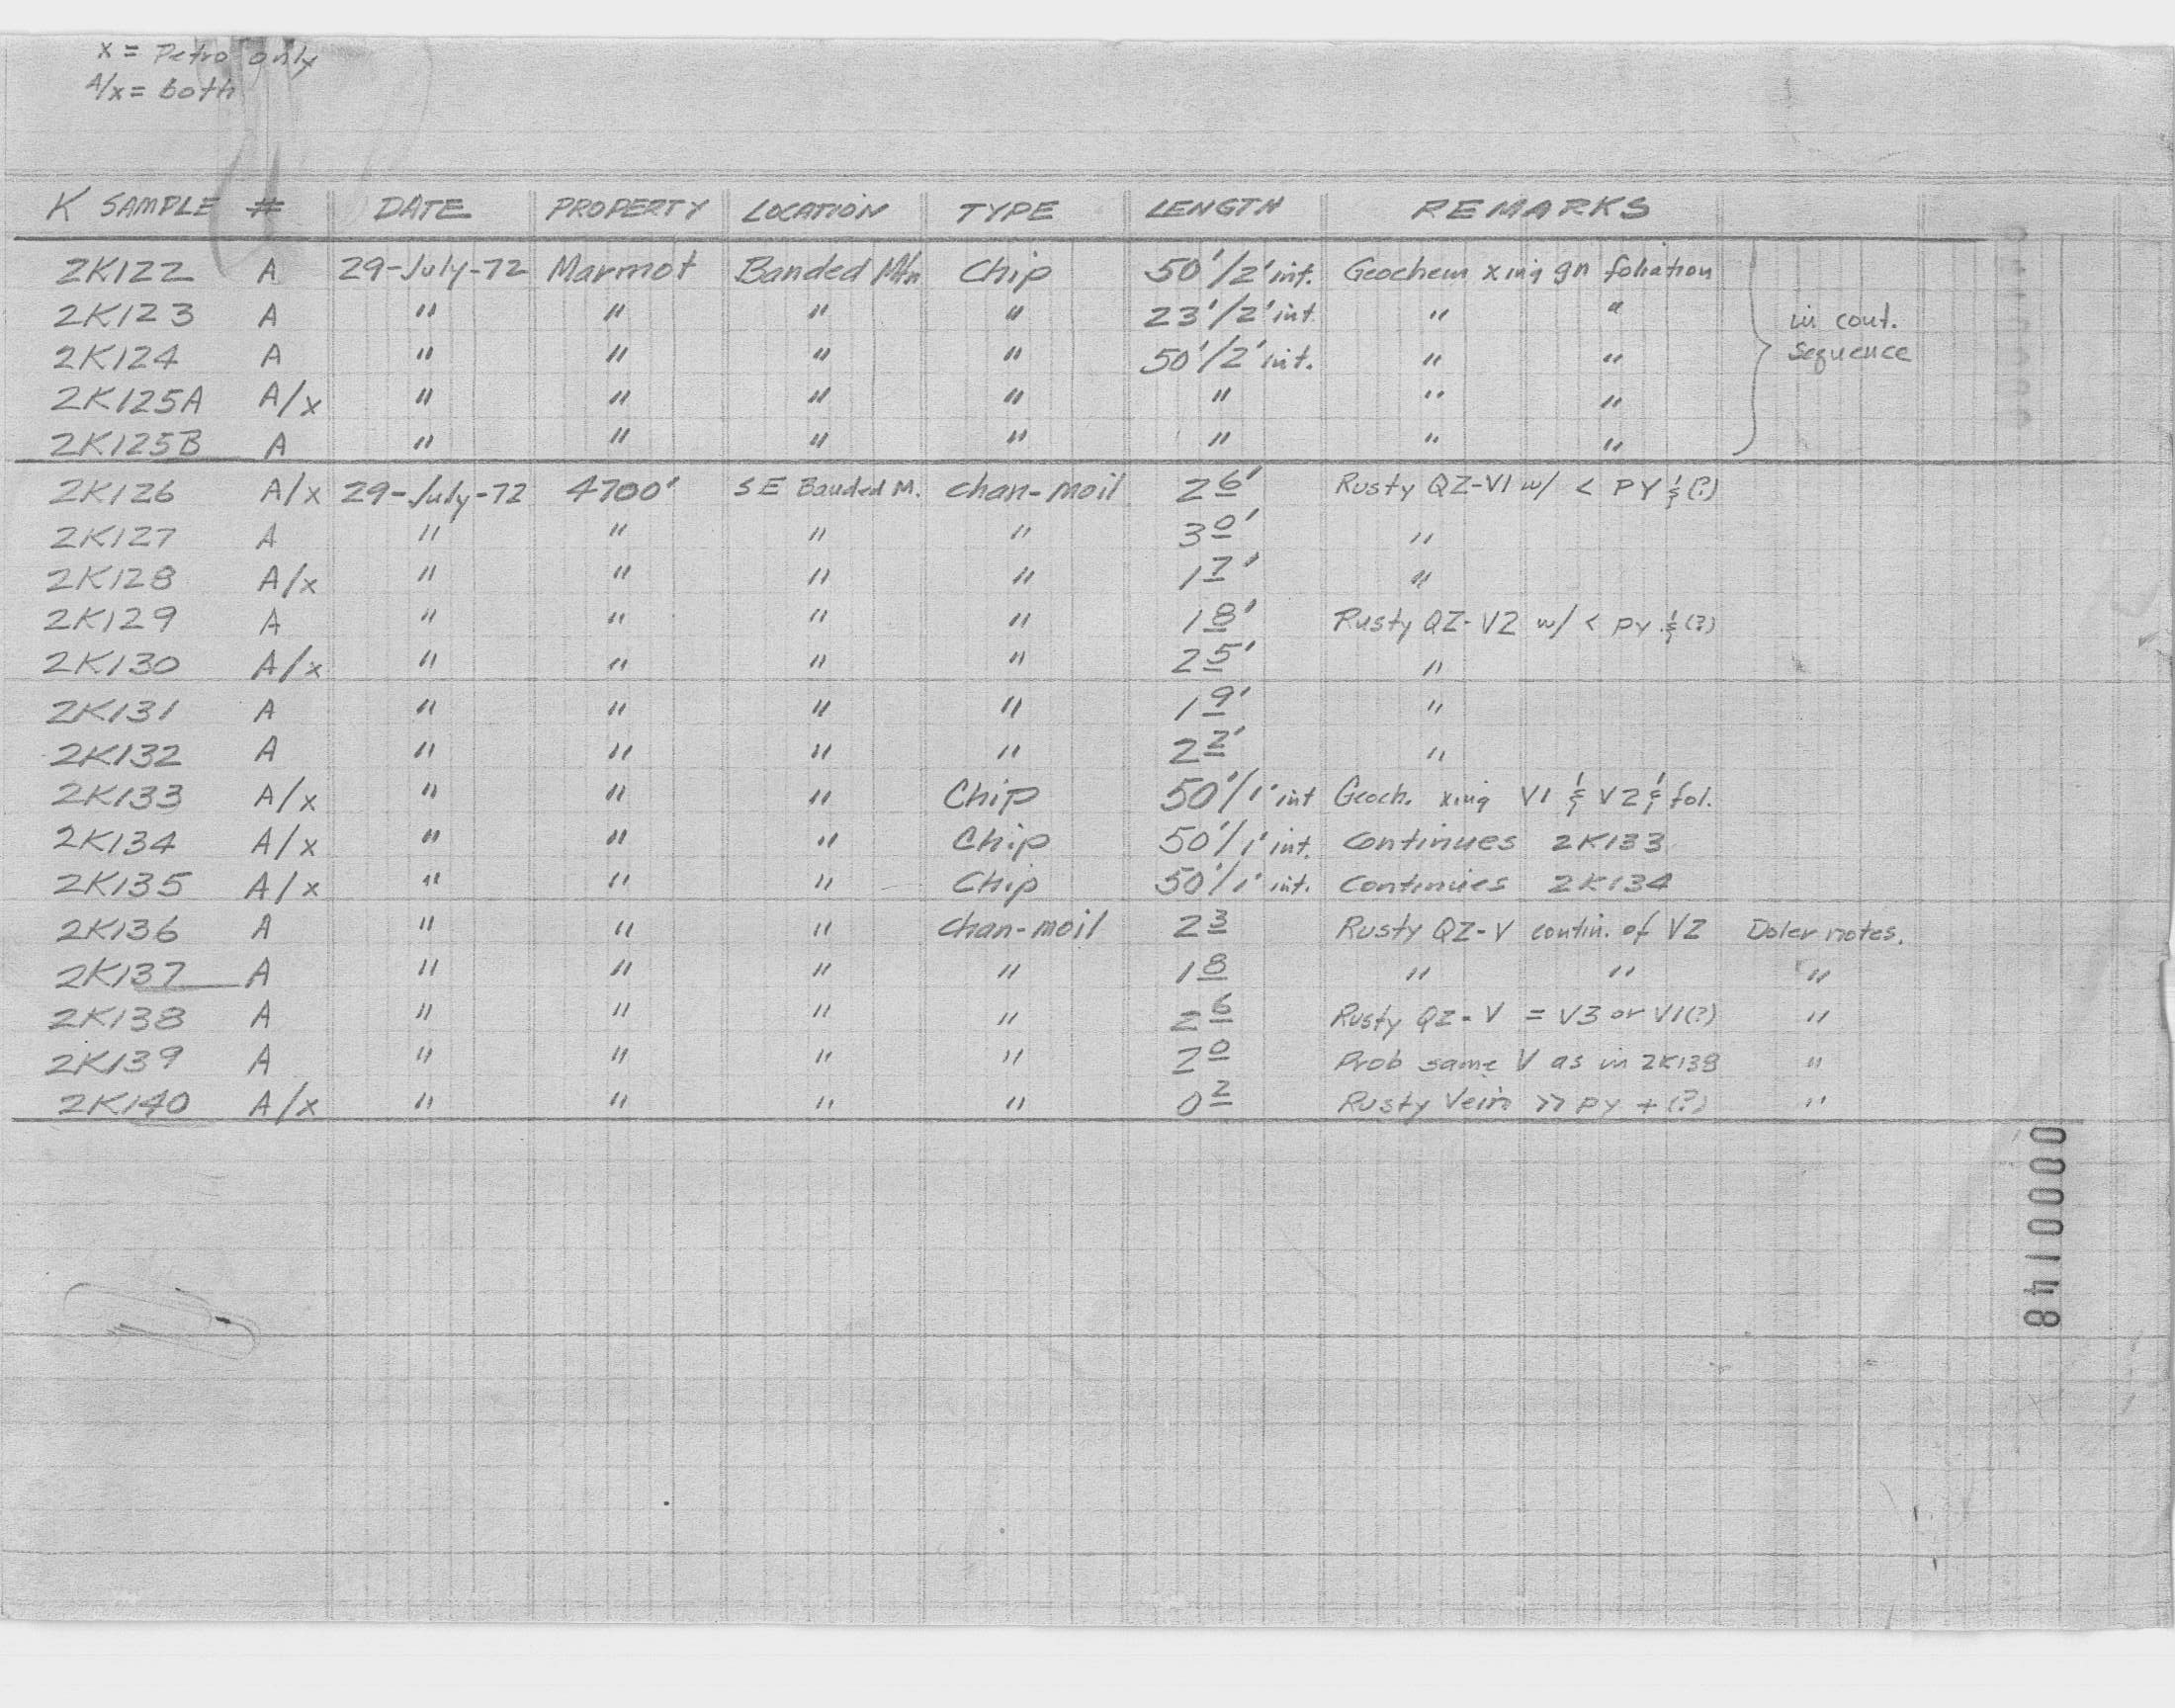 x = Petro only
A/x = both
K SAMPLE # DATE PROPERTY LOCATION TYPE LENGTH REMARKS
2K122 A 29-July-72 Marmot Banded Mtn Chip 50'/2' int. Geochem xing gn foliation
2K123 A " " " " 23'/2' int " "
in cont.
2K124 A " " " " 50'/2' int. " "
sequence
2K125A A/x " " " " " " "
2K125B A " " " " " " "
2K126 A/x 29-July-72 4700' SE Banded M. chan-moil 2 6' Rusty QZ-V1 w/ < PY & (?)
2K127 A " " " " 3 0' "
2K128 A/x " " " " 1 7' "
2K129 A " " " " 1 8' Rusty QZ-V2 w/ < PY & (?)
2K130 A/x " " " " 2 5' "
2K131 A " " " " 1 9' "
2K132 A " " " " 2 2' "
2K133 A/x " " " Chip 50'/1' int Geoch. xing V1 & V2 & fol.
2K134 A/x " " " Chip 50'/1' int. Continues 2K133
2K135 A/x " " " Chip 50'/1' int. Continues 2K134
2K136 A " " " chan-moil 2 3 Rusty QZ-V contin. of V2 Doler notes.
2K137 A " " " " 1 8 " " "
2K138 A " " " " 2 6 Rusty QZ-V = V3 or V1(?) "
2K139 A " " " " 2 0 Prob same V as in 2K138 "
2K140 A/x " " " " 0 2 Rusty Vein >> PY + (?) "
0000148